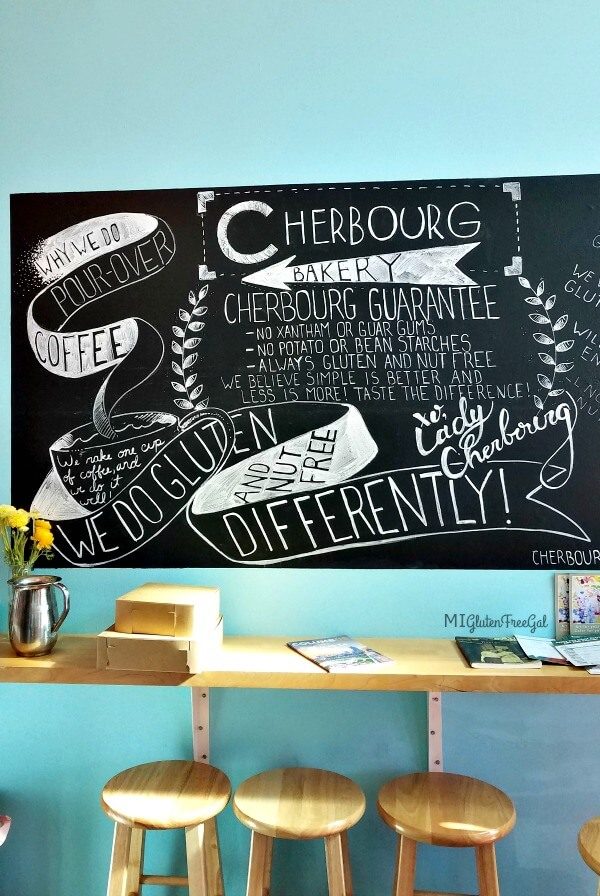 WHY WE DO
POUR-OVER
COFFEE
We make one cup
of coffee, and
we do it
well!
CHERBOURG
BAKERY
CHERBOURG GUARANTEE
- NO XANTHAM OR GUAR GUMS
- NO POTATO OR BEAN STARCHES
- ALWAYS GLUTEN AND NUT FREE
WE BELIEVE SIMPLE IS BETTER AND
LESS IS MORE! TASTE THE DIFFERENCE!
xo,
Lady
Cherbourg
WE DO GLUTEN
AND
NUT
FREE
DIFFERENTLY!
CHERBOUR
MIGlutenFreeGal